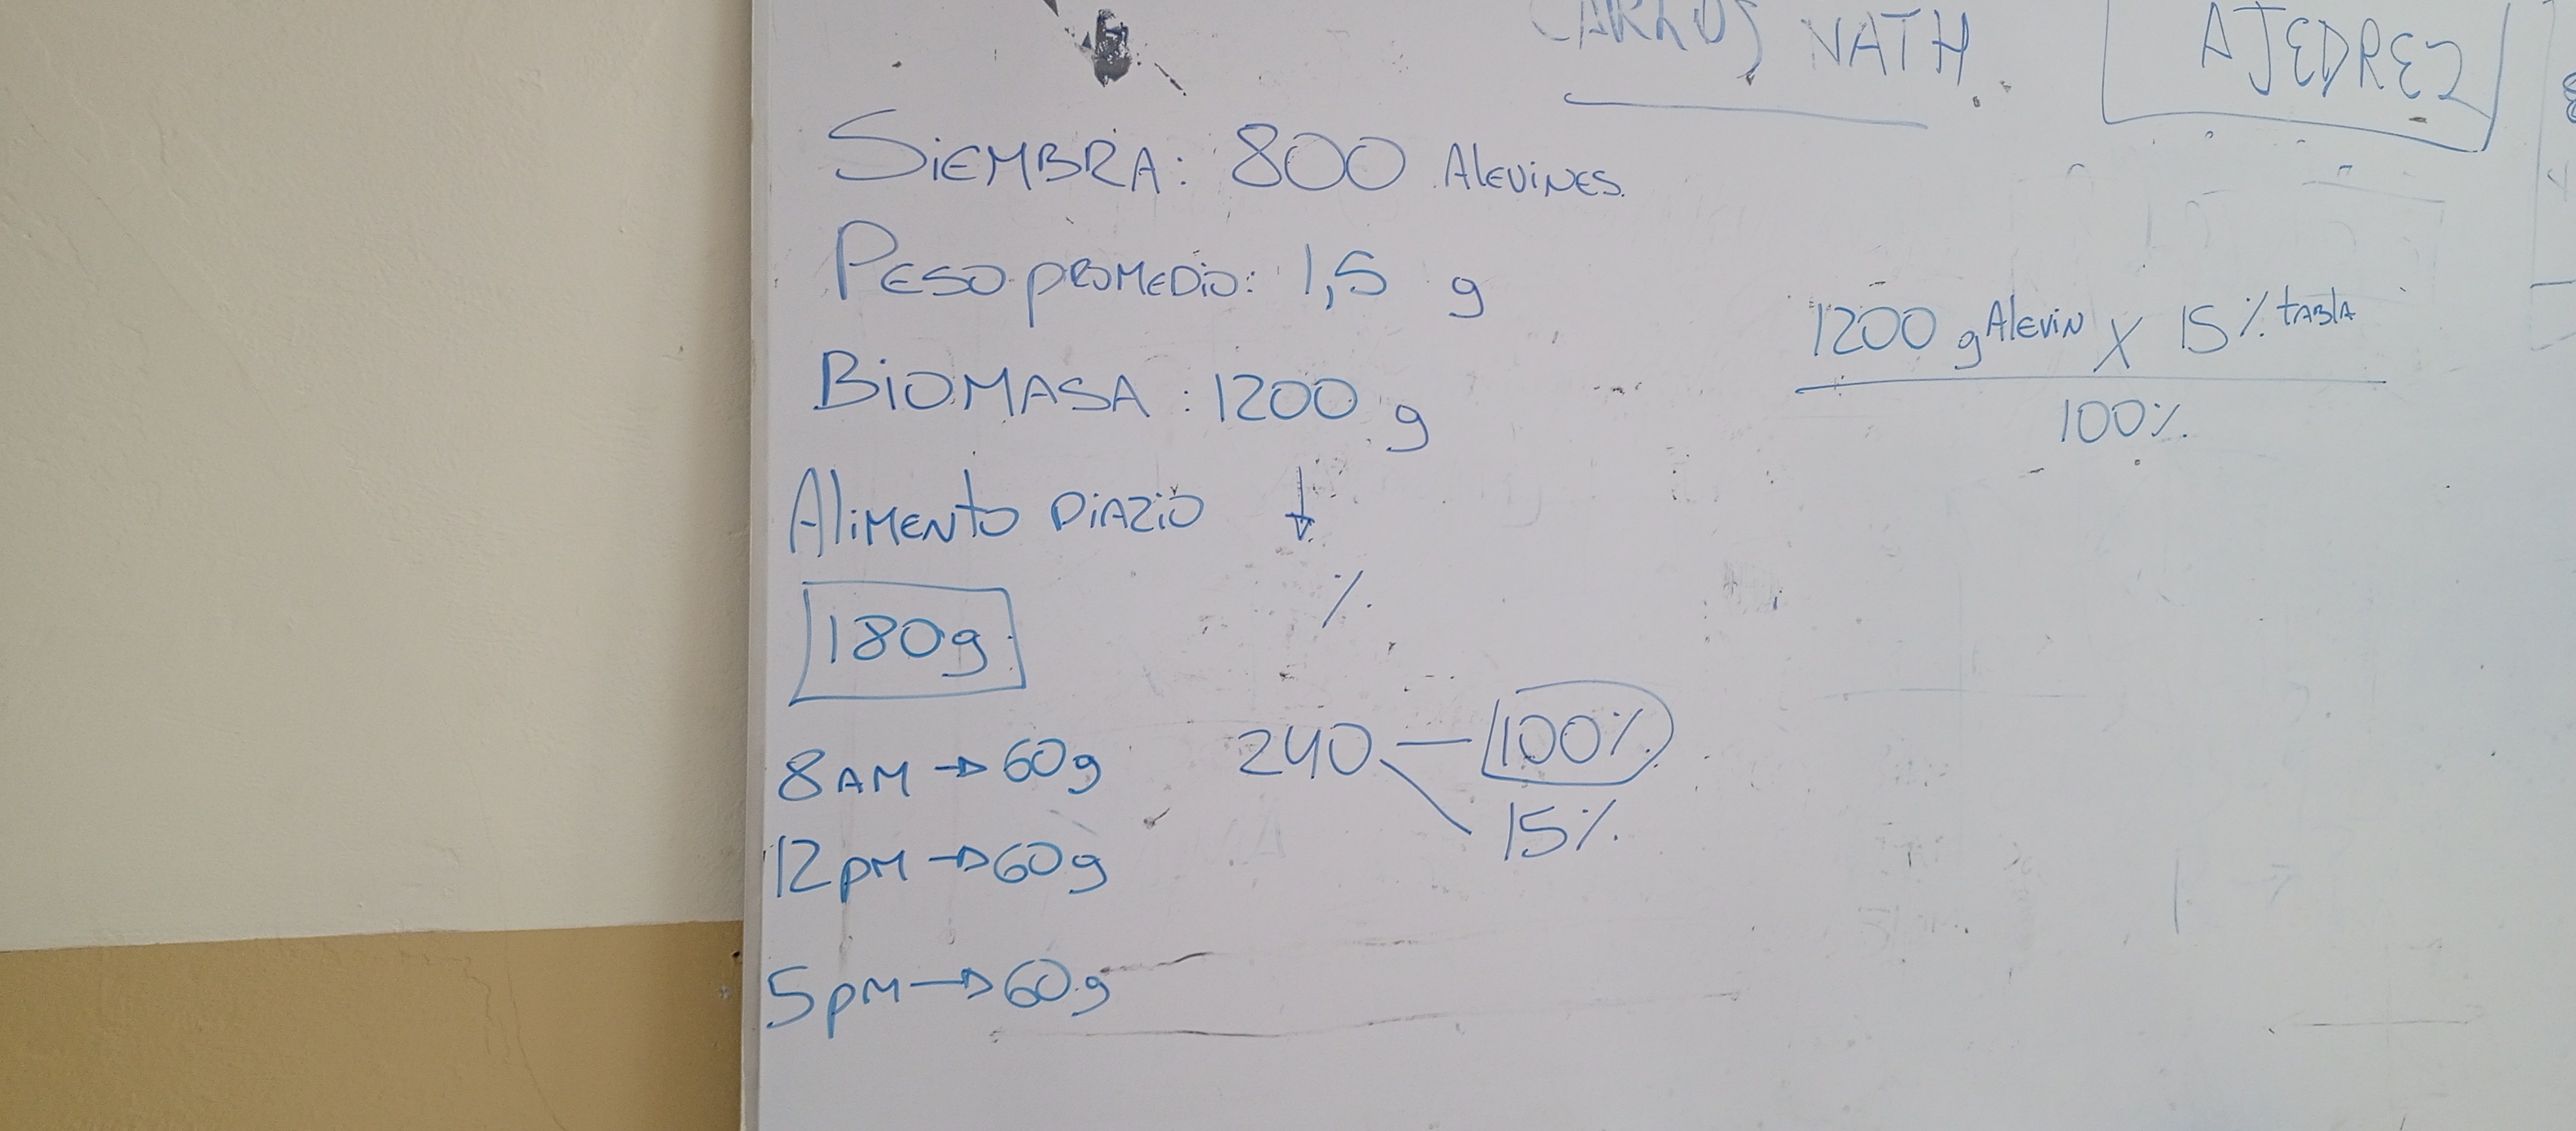 CARLOS NATH
AJEDREZ
SiEMBRA: 800 AlEViNES.
PESO PROMEDiO: 1,5 g
BiOMASA: 1200 g
AliMENtO DiARiO ↓
180g
%
8AM → 60g
12pM → 60g
5pM → 60g
240 — 100%
15%
1200 g AlEViN X 15% tABlA
100%